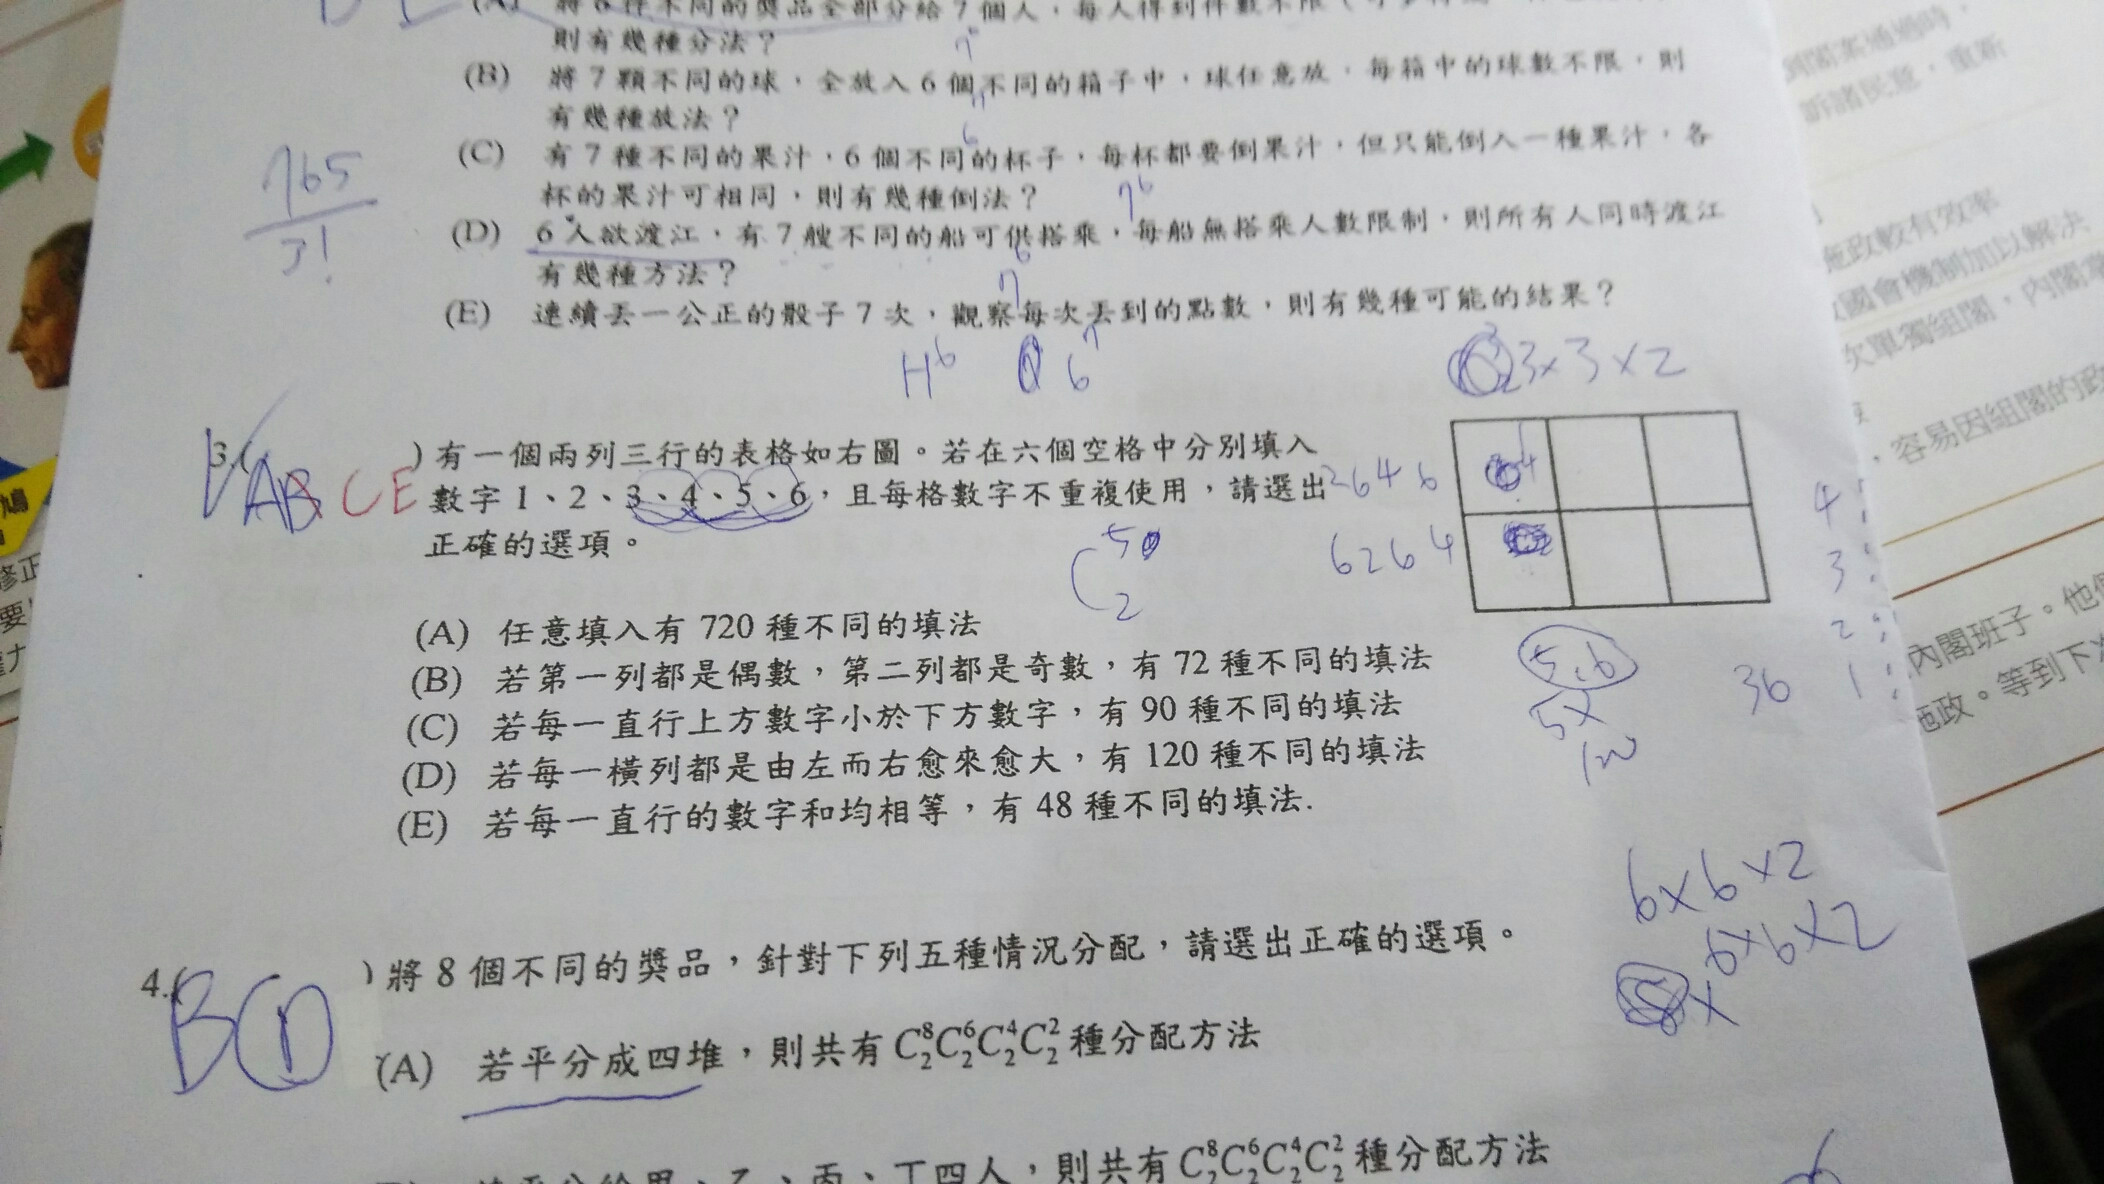 將 6 件不同的獎品全部分給 7 個人，每人得到件數不限
則有幾種分法？
(B) 將 7 顆不同的球，全放入 6 個不同的箱子中，球任意放，每箱中的球數不限，則
有幾種放法？
(C) 有 7 種不同的果汁，6 個不同的杯子，每杯都要倒果汁，但只能倒入一種果汁，各
杯的果汁可相同，則有幾種倒法？
7⁶
765
3!
(D) 6 人欲渡江，有 7 艘不同的船可供搭乘，每船無搭乘人數限制，則所有人同時渡江
有幾種方法？
7⁶
(E) 連續丟一公正的骰子 7 次，觀察每次丟到的點數，則有幾種可能的結果？
H⁶ 6⁷
3×3×2
3.( AB CE ) 有一個兩列三行的表格如右圖。若在六個空格中分別填入
數字 1、2、3、4、5、6，且每格數字不重複使用，請選出
正確的選項。
2646
6264
C⁵₂
4!
3!
2!
1!
(A) 任意填入有 720 種不同的填法
(B) 若第一列都是偶數，第二列都是奇數，有 72 種不同的填法
(C) 若每一直行上方數字小於下方數字，有 90 種不同的填法
(D) 若每一橫列都是由左而右愈來愈大，有 120 種不同的填法
(E) 若每一直行的數字和均相等，有 48 種不同的填法.
5.6
5×
36
6×6×2
6×6×2
4.( BCD ) 將 8 個不同的獎品，針對下列五種情況分配，請選出正確的選項。
(A) 若平分成四堆，則共有 C⁸₂C⁶₂C⁴₂C²₂ 種分配方法
丙、丁四人，則共有 C⁸₂C⁶₂C⁴₂C²₂ 種分配方法
施政較有效率
國會機制加以解決
次單獨組閣，內閣
，容易因組閣的政
內閣班子。他
施政。等到下
訴諸民意，重新
修正
要